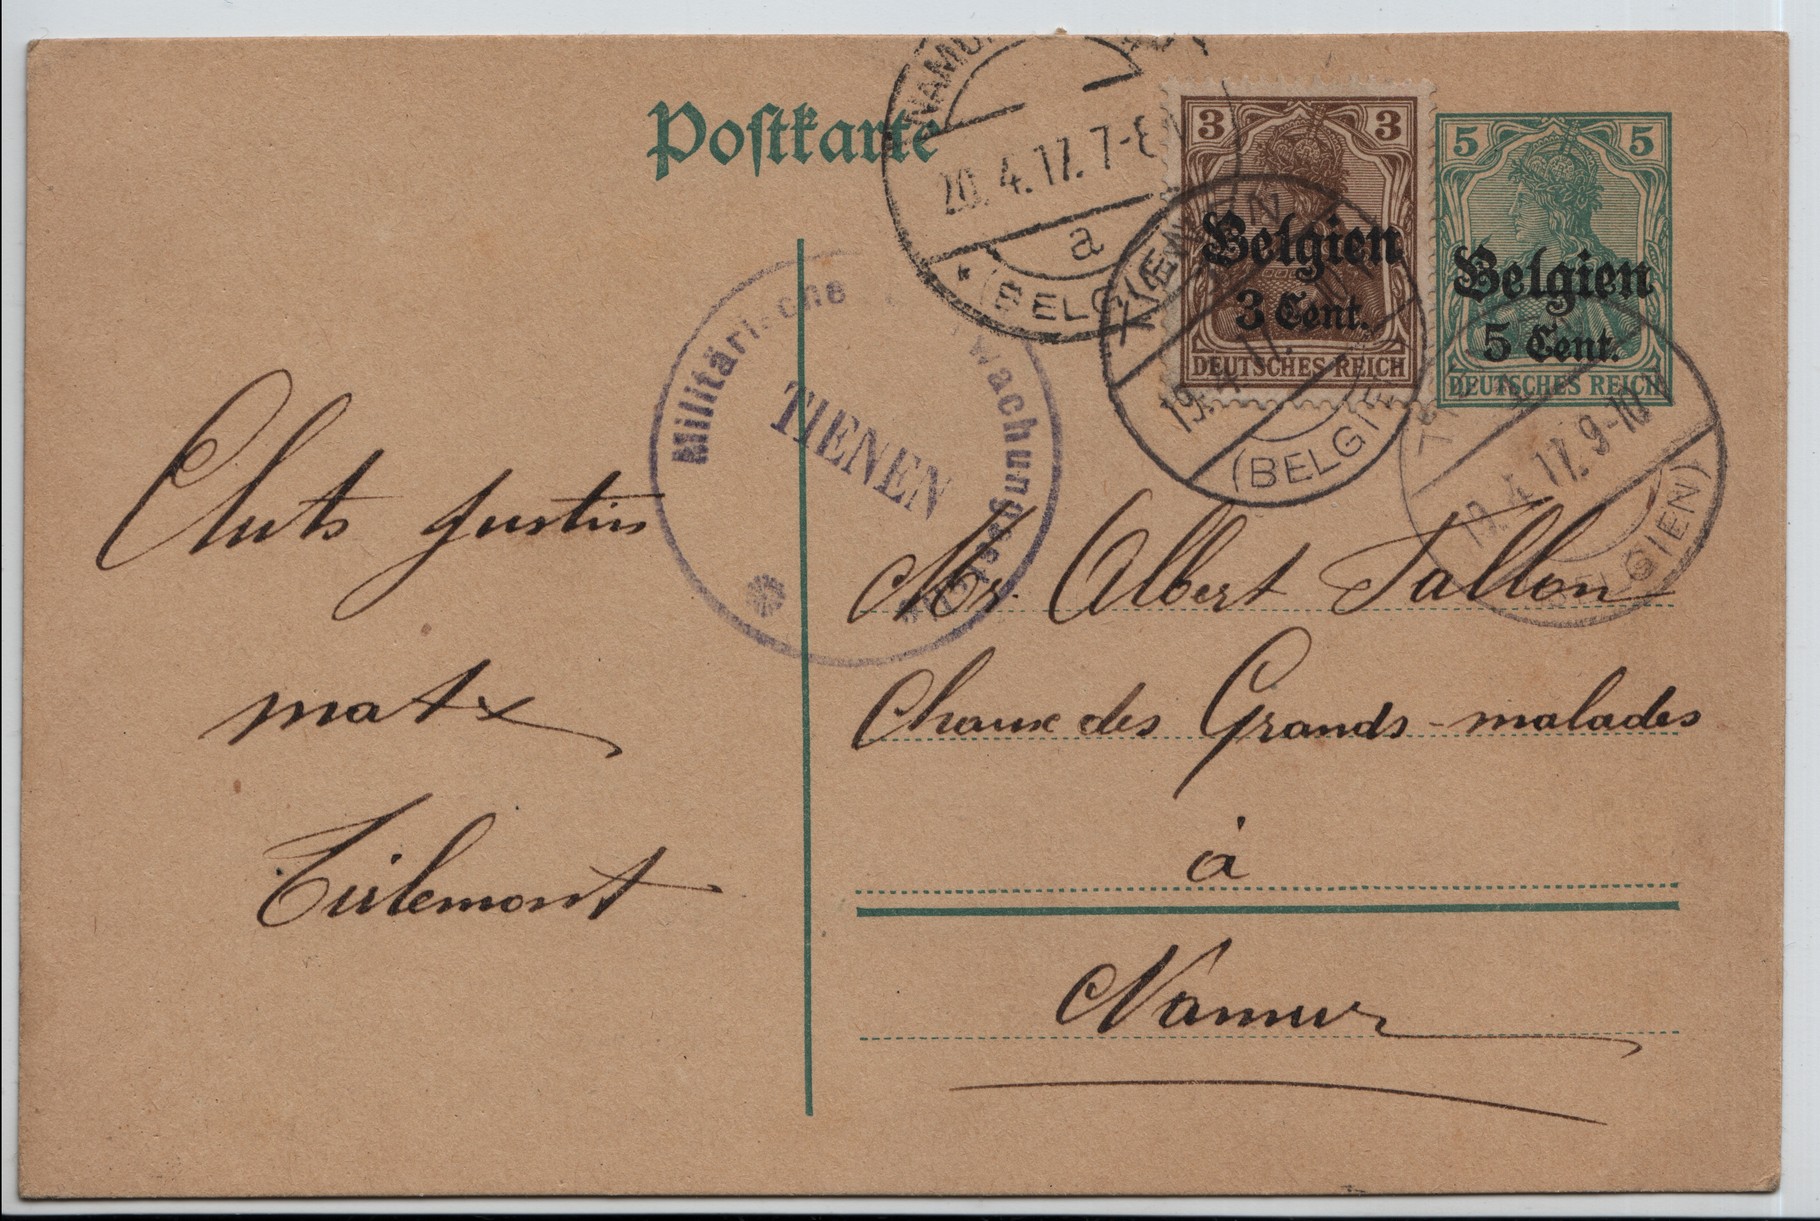 Postkarte
NAMUR
20. 4. 17. 7-8
a
* (BELGIEN)
3 3
Belgien
3 Cent.
DEUTSCHES REICH
5 5
Belgien
5 Cent.
DEUTSCHES REICH
TIENEN
19. 4. 17.
(BELGIEN)
19. 4. 17. 9-10
(BELGIEN)
Militärische
TIENEN
Cluts Justin
Tirlemont
Mr. Albert Tallon
Chaux des Grands-malades
à
Namur